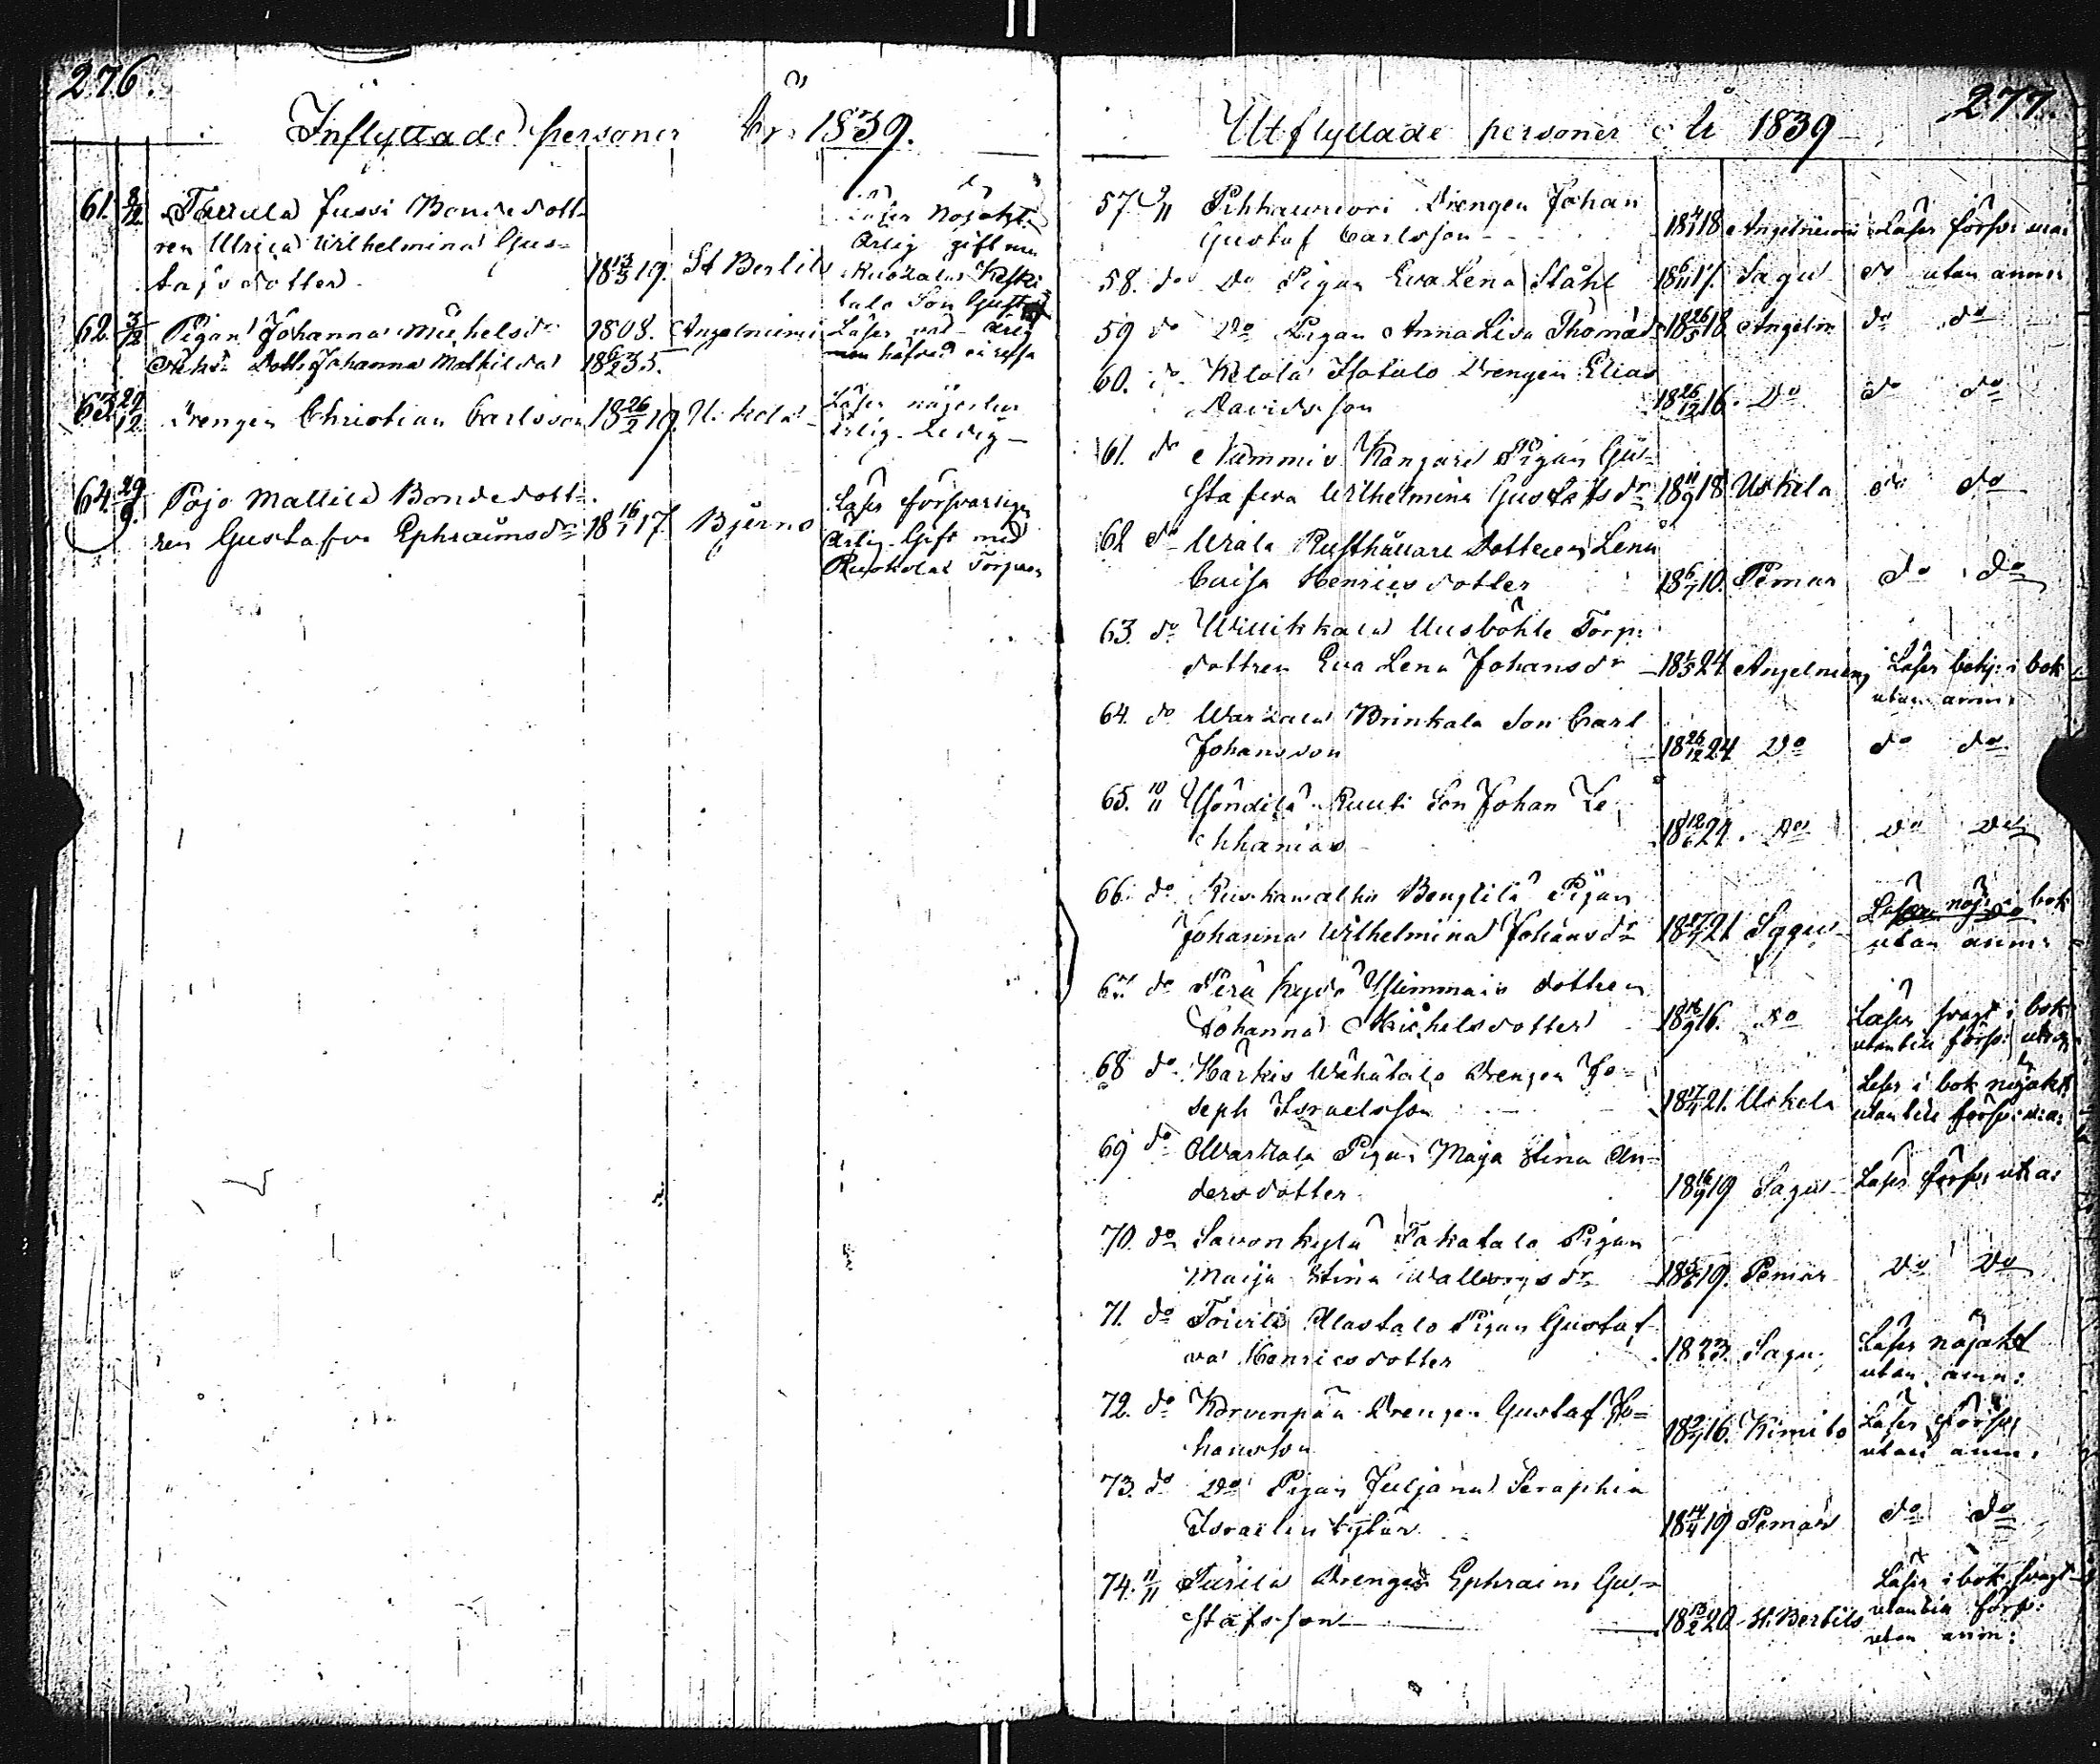 276.
Inflyttade personer År 1839.
61. 8/12 Taurula Jussi Bondedott-
ren Ulrica Wilhelmina Gus-
tafsdotter 18 13/3 19. St Bertils
Läser nöjaktl.
Ärlig gift med
tala Son Gustaf
62. 3/12 Pigan Johanna Michelsdr 1808. Angelniemi Läser
Dottr Johanna Mathilda 18 6/2 35.
63. 29/12 Drengen Christian Carlsson 18 26/2 19. Uskela
Läser
Ärlig. Ledig
64. 29/9. Pojo Mattila Bondedott-
ren Gustafva Ephraimsdr 18 16/1 17. Bjerno
Läser försvarligen
Ärlig. Gift med
Ruokola Torparen
277.
Utflyttade personer År 1839
57. 9/11 Pihkavuori Drengen Johan
Gustaf Carlsson 18 18 Angelniemi Läser försv:
58. do Do Pigan Eva Lena Ståhl 18 6/11 17. Sagu do utan anm:
59 do Do Pigan Anna Lisa Thomasdr 18 26/5 18 Angeln do do
60. do Ketola Isotalo Drengen Elias
Davidsson 18 26/12 16. Do do do
61. do Nummis Kangare Pigan Gu-
stafva Wilhelmina Gustafsdr 18 11/9 18 Uskela do do
62 do Urala Rusthållare Dottren Lena
Caisa Henricsdotter 18 6/7 10. Pemar do do
63. do Willikkala Uusböhle Torp:
dottren Eva Lena Johansdr 18 24 Angelniemi Läser behj: i bok
utan anm:
64. do Waskala Brinkala Son Carl
Johansson 18 26/12 24 Do do do
65. 10/11 Ruuti Son Johan Ze
chharias 18 18/6 24. Do do do
66. do Bengtilä Pigan
Johanna Wilhelmina Johansdr 18 21 Sagu Läser nöj: i bok
utan anm:
67. do dottren
Johanna Michelsdotter 18 16/9 16. Do Läser svagt i bok
utantill försv:
68 do Härkis Wähätalo Drengen Jo-
seph Israelsson 18 17/4 21. Uskela Läser i bok nöjaktl
utantill försv:
69 do Waskala Pigan Maja Stina An-
dersdotter 18 16/9 19 Sagu Läser försv:
70. do Sauvonkylä Takatalo Pigan
Maija Stina Wallborgsdr 18 19. Pemar Do Do
71. do Toivila Alastalo Pigan Gustaf
va Henricsdotter 1823. Sagu Läser nöjaktl
utan anm:
72. do Korvenpää Drengen Gustaf Jo-
hansson 18 16. Kimito Läser försv:
utan anm:
73. do Do Pigan Juljana Seraphia
Israelin tytär 18 14/4 19 Pemar do do
74. 11/11 Drengen Ephraim Gu-
stafsson 18 13/2 20 St. Bertils
Läser i bok svagt
utantill försv:
utan anm: